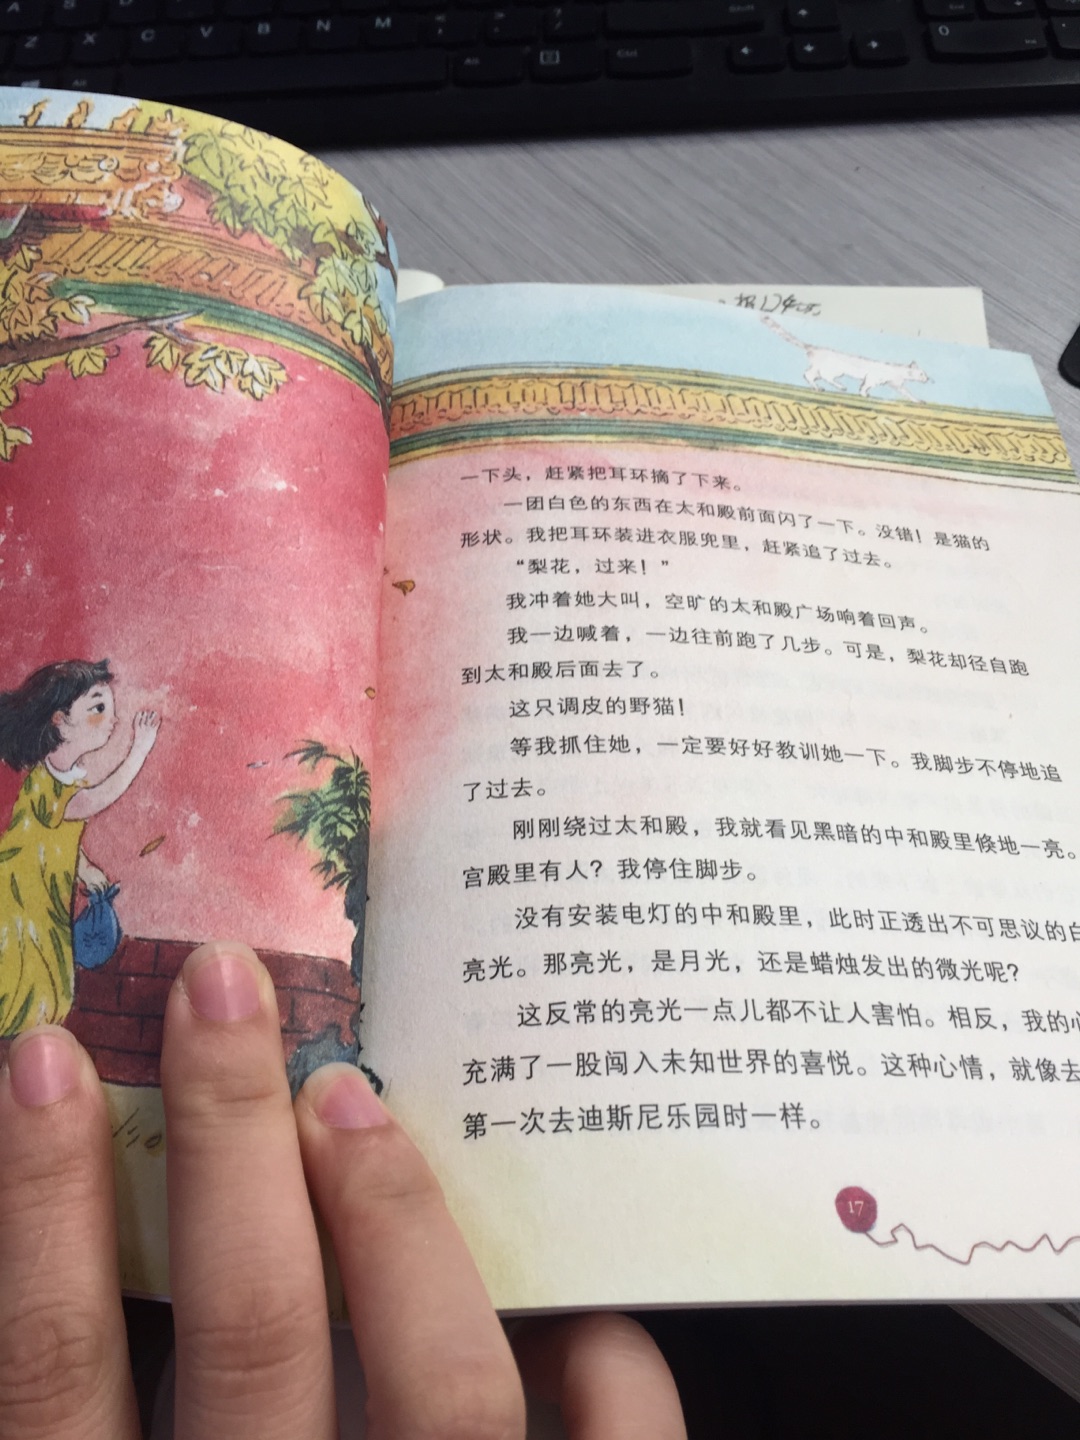 A
S
D
Z
X
C
V
B
N
M
Shift
Alt
Ctrl
0
一下头，赶紧把耳环摘了下来。
一团白色的东西在太和殿前面闪了一下。没错！是猫的
形状。我把耳环装进衣服兜里，赶紧追了过去。
“梨花，过来！”
我冲着她大叫，空旷的太和殿广场响着回声。
我一边喊着，一边往前跑了几步。可是，梨花却径自跑
到太和殿后面去了。
这只调皮的野猫！
等我抓住她，一定要好好教训她一下。我脚步不停地追
了过去。
刚刚绕过太和殿，我就看见黑暗的中和殿里倏地一亮。
宫殿里有人？我停住脚步。
没有安装电灯的中和殿里，此时正透出不可思议的白
亮光。那亮光，是月光，还是蜡烛发出的微光呢？
这反常的亮光一点儿都不让人害怕。相反，我的心
充满了一股闯入未知世界的喜悦。这种心情，就像去
第一次去迪斯尼乐园时一样。
17